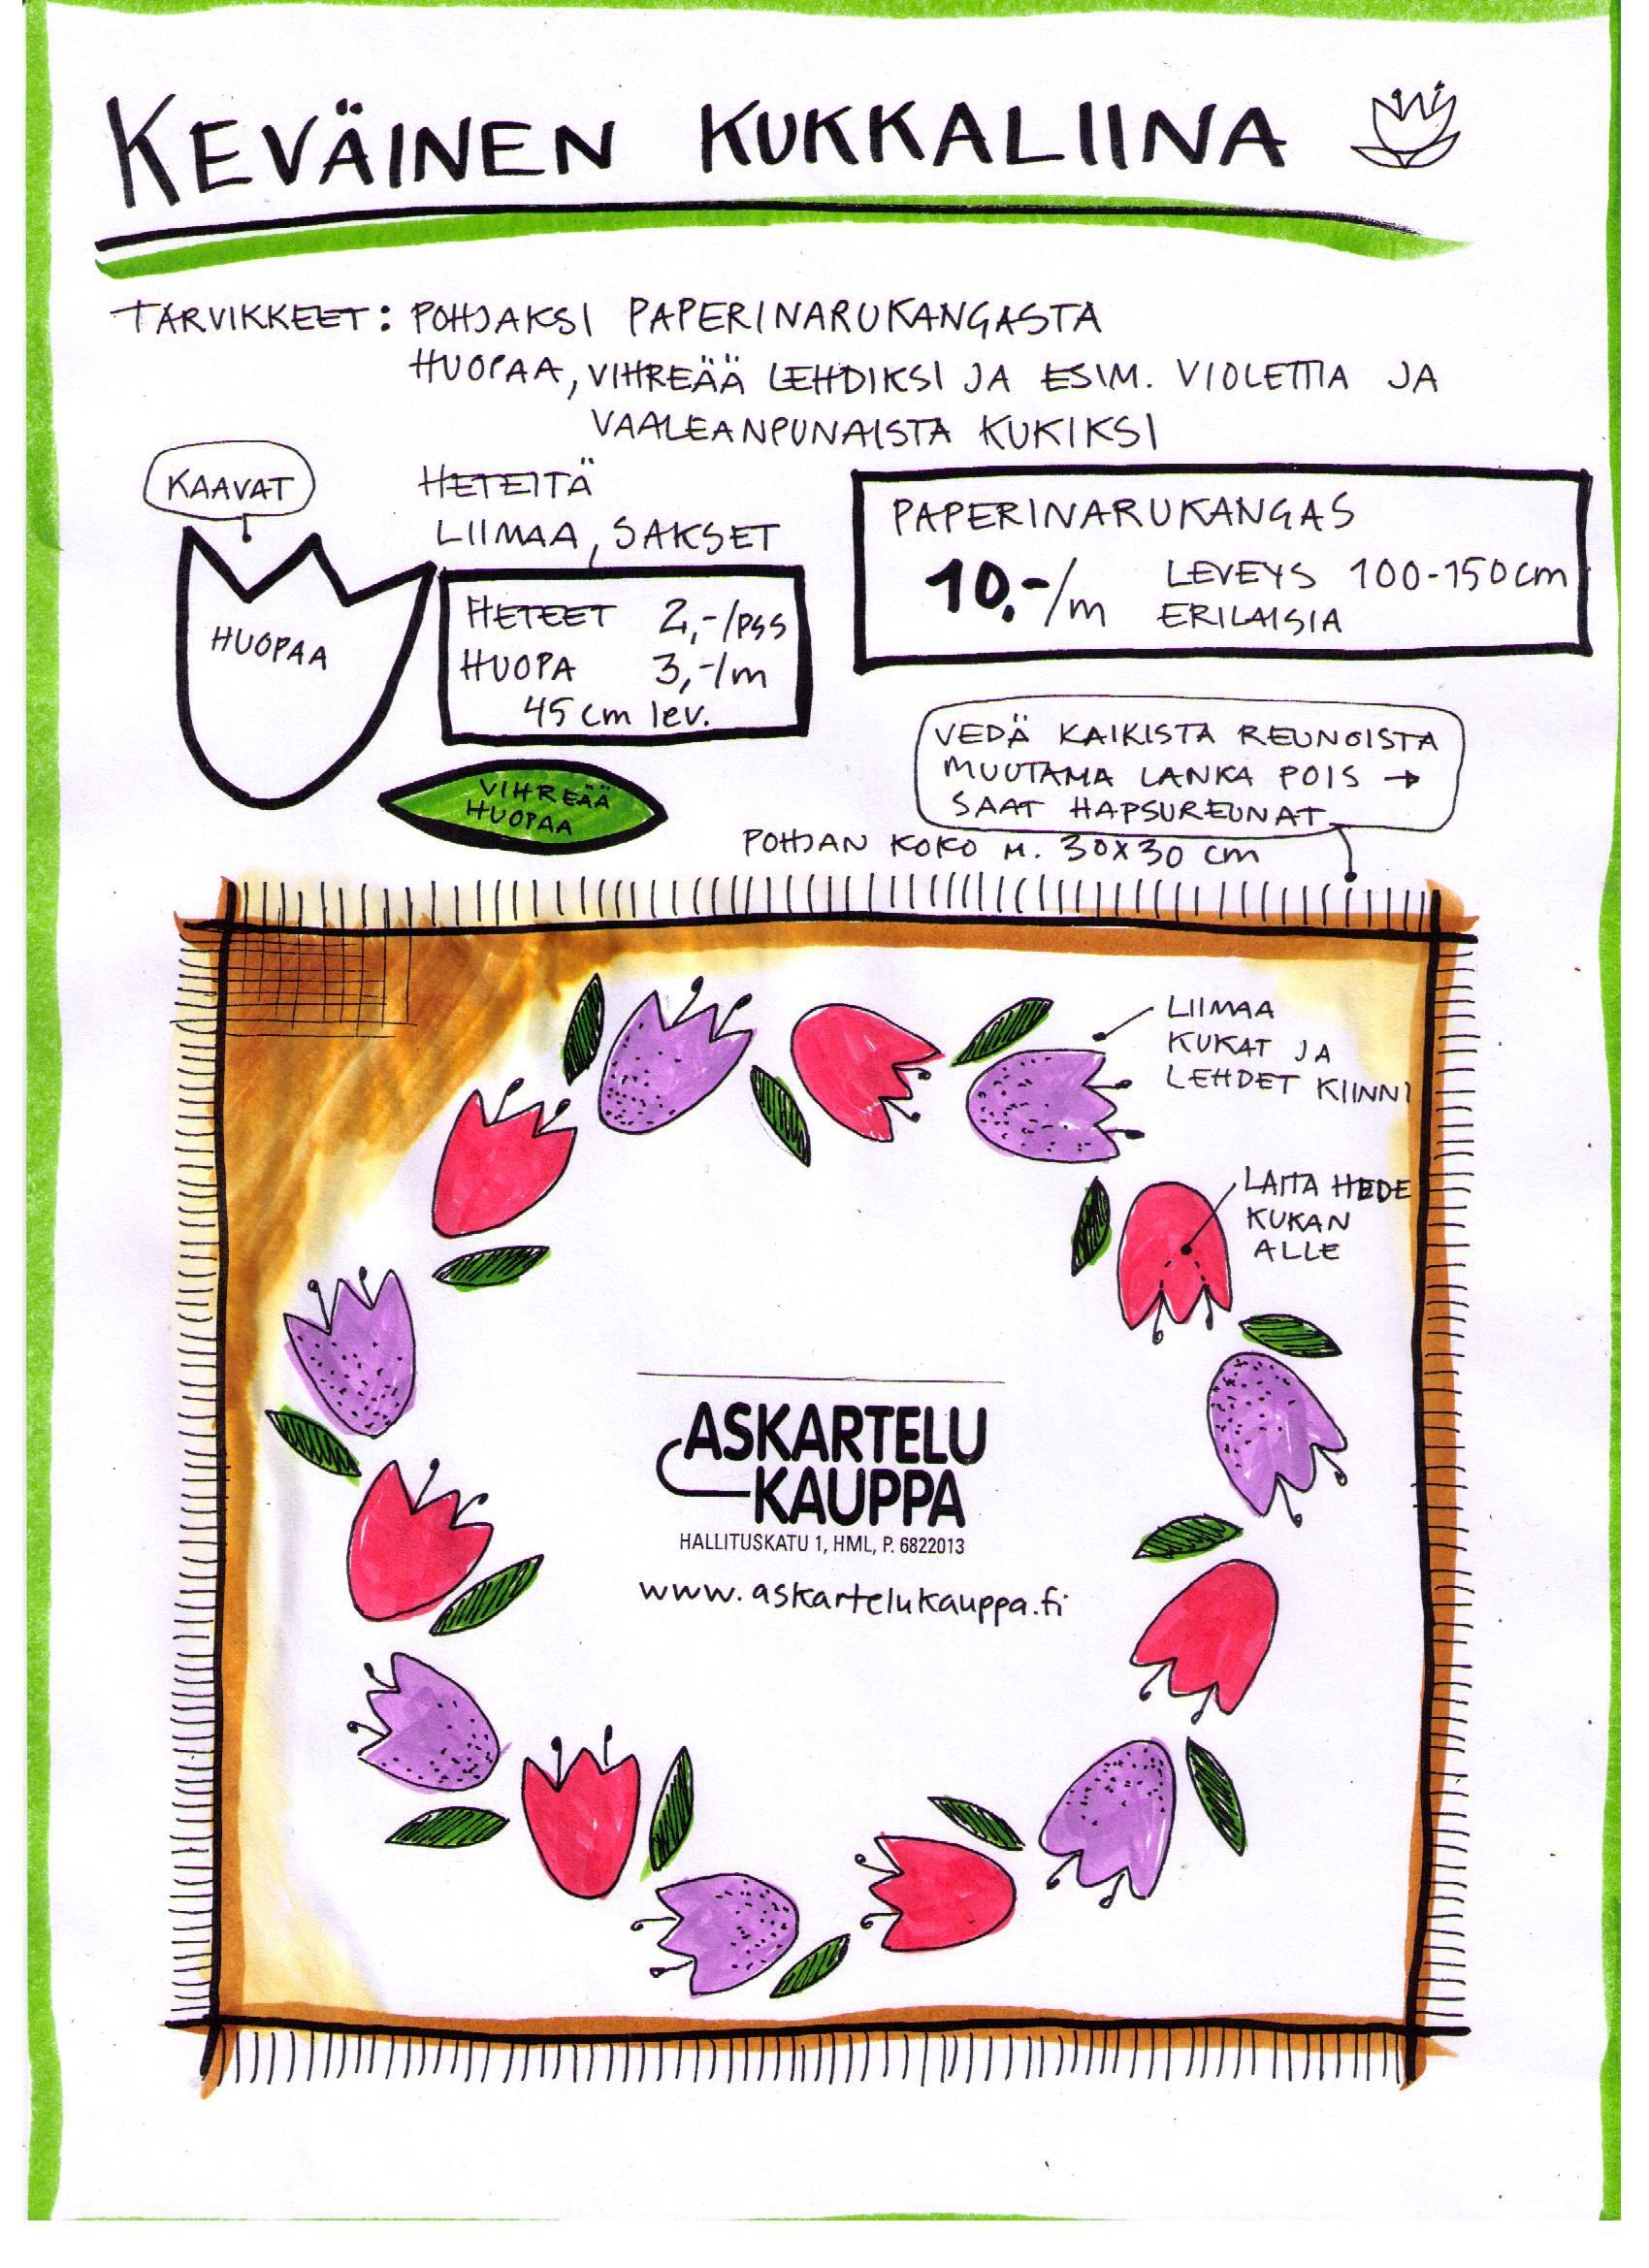 KEVÄINEN KUKKALIINA
TARVIKKEET: POHJAKSI PAPERINARUKANGASTA
HUOPAA, VIHREÄÄ LEHDIKSI JA ESIM. VIOLETTIA JA
VAALEANPUNAISTA KUKIKSI
HETEITÄ
LIIMAA, SAKSET
KAAVAT
HUOPAA
HETEET 2,-/PSS
HUOPA 3,-/m
45 cm lev.
PAPERINARUKANGAS
10,-/m LEVEYS 100-150 cm
ERILAISIA
VIHREÄÄ
HUOPAA
VEDÄ KAIKISTA REUNOISTA
MUUTAMA LANKA POIS →
SAAT HAPSUREUNAT
POHJAN KOKO N. 30X30 cm
LIIMAA
KUKAT JA
LEHDET KIINNI
LAITA HEDE
KUKAN
ALLE
ASKARTELU
KAUPPA
HALLITUSKATU 1, HML, P. 6822013
www.askartelukauppa.fi